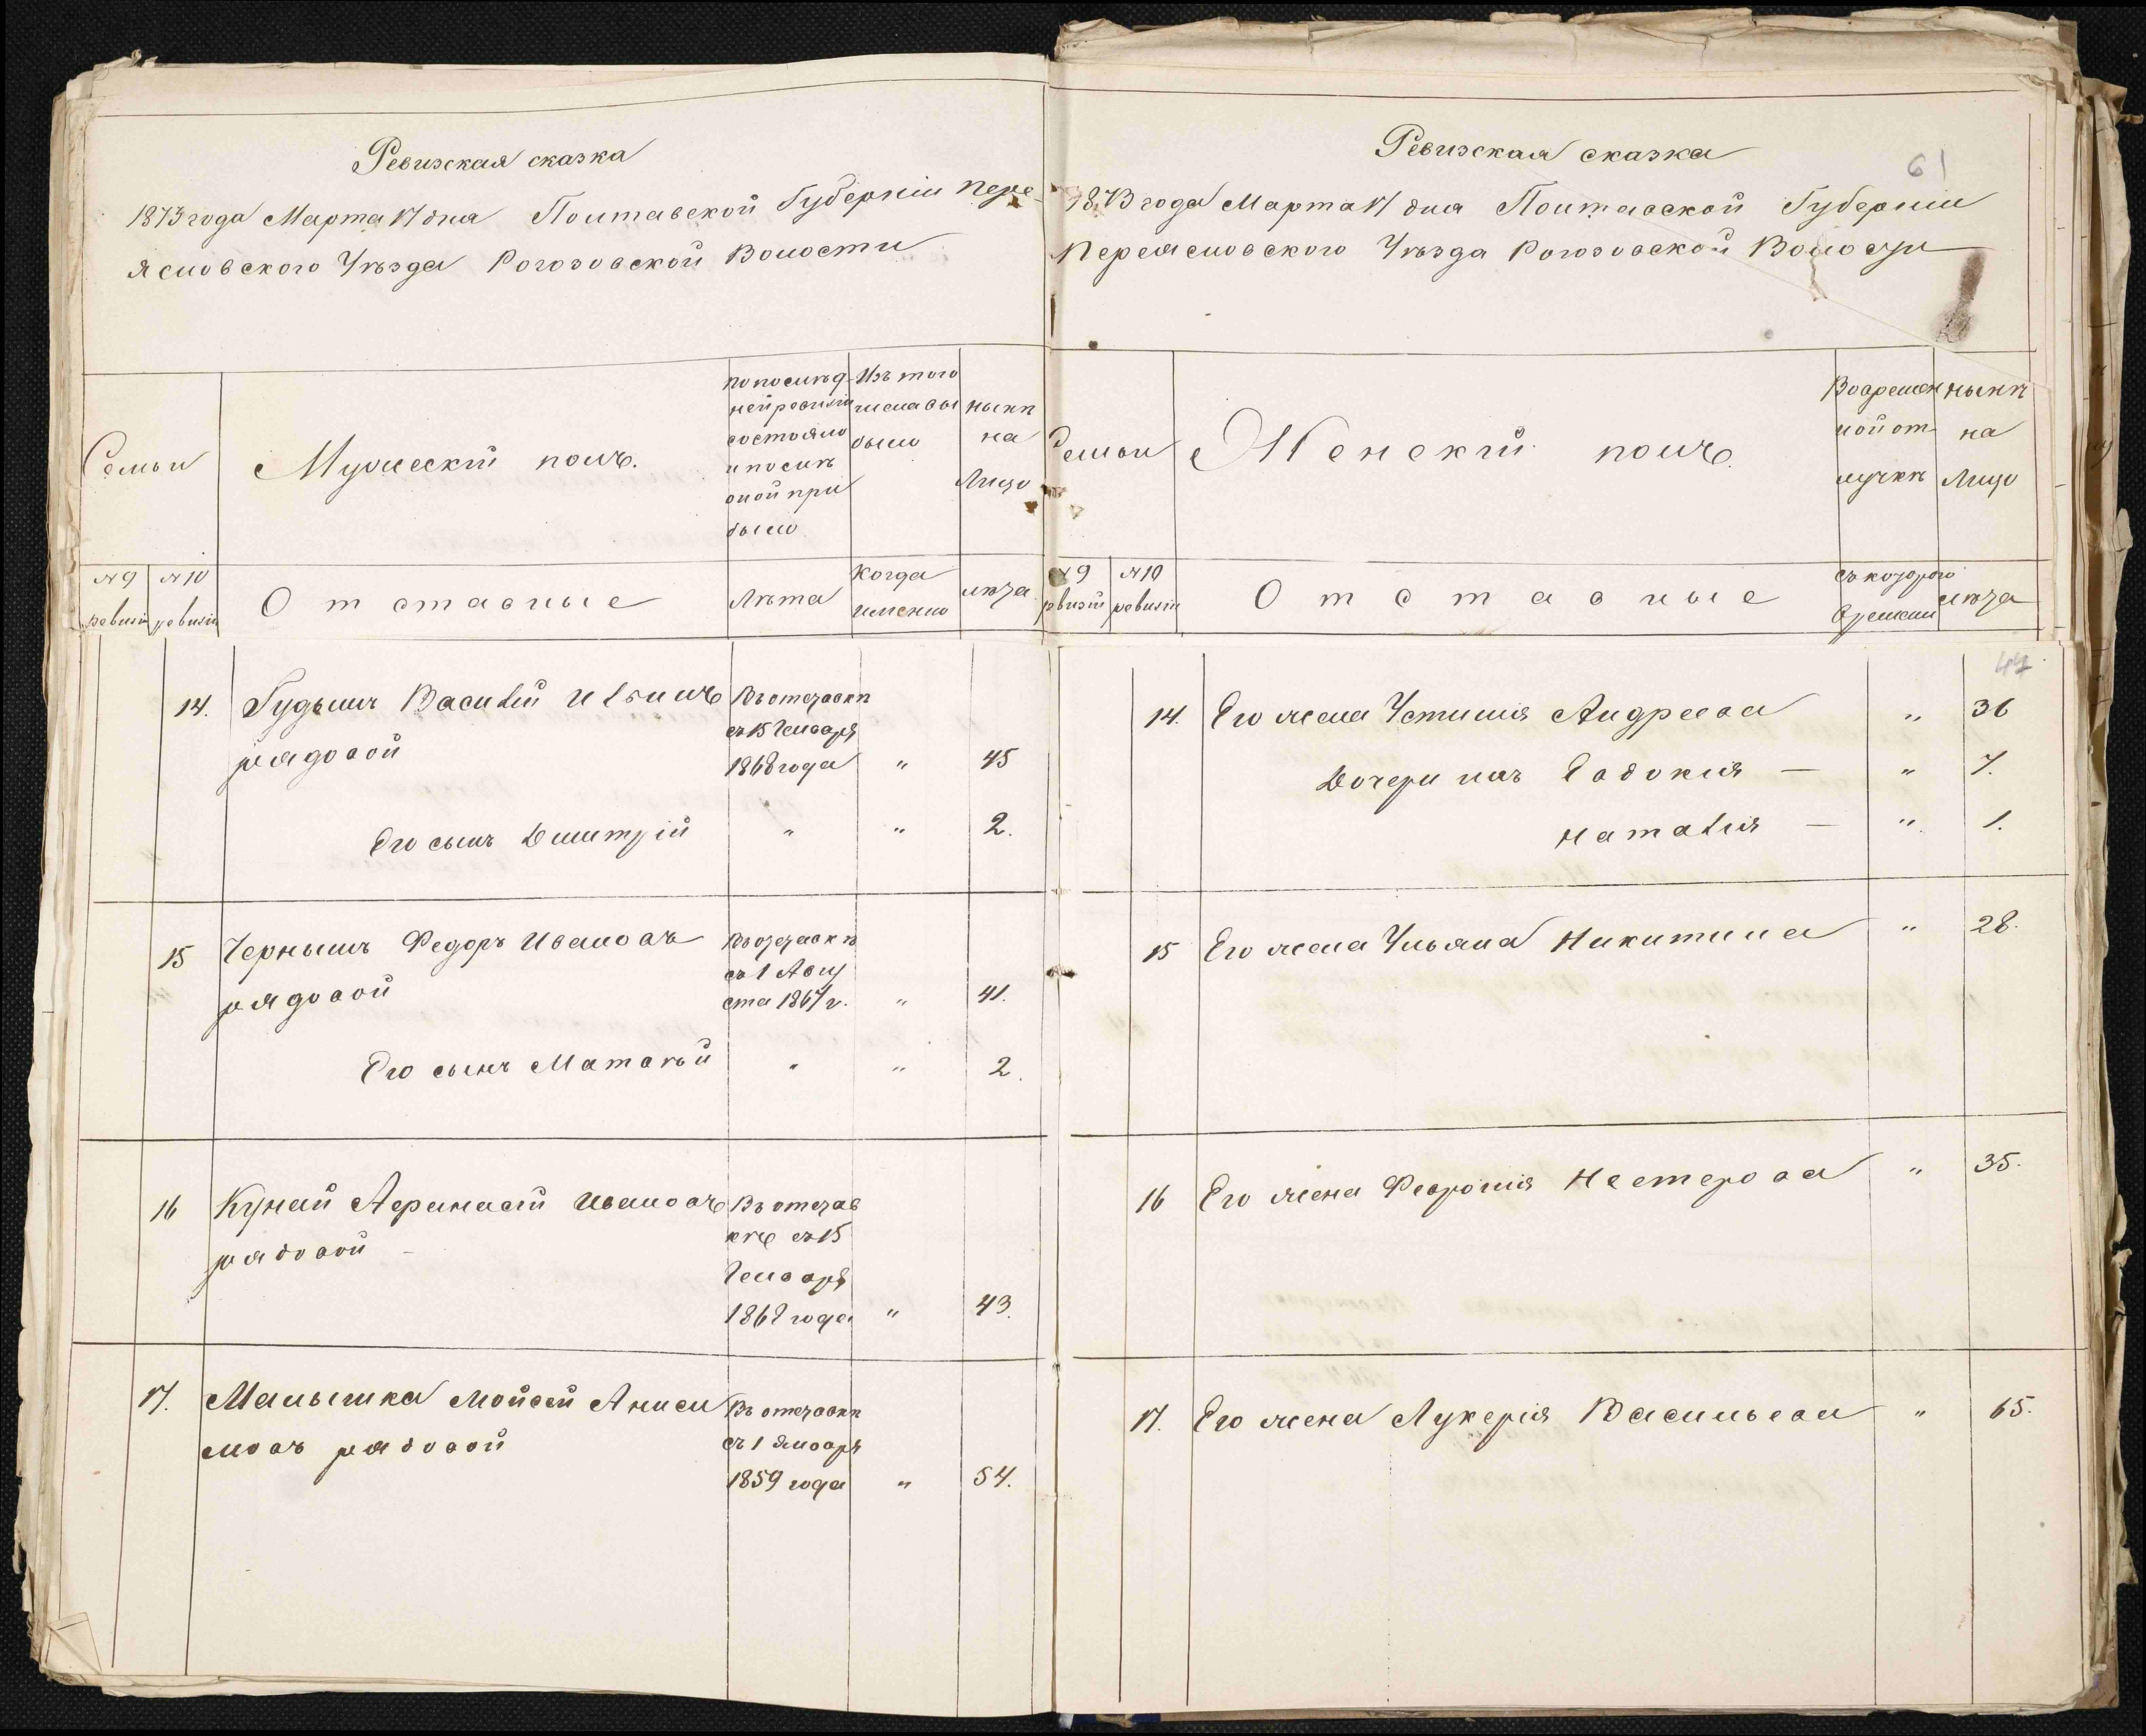 Ревизская сказка
1873 года Марта 17 дня Полтавской Губерніи Пере-
яславского Уѣзда Рогозовской Волости
Семьи
Мужескій полъ.
По послѣд
ней ревизіи
состояло
и послѣ
оной при
было
Изъ того
числа вы
было
Нынѣ
на
Лицо
№ 9
ревизіи
№ 10
ревизіи
Отставные
Лѣта
Когда
именно
лѣта
14. Гудымъ Василій Ильинъ
рядовой
Въ отставкѣ
съ 15 Генваря
1868 года " 45
Его сынъ Дмитрій " " 2.
15 Чернышъ Федоръ Ивановъ
рядовой
Въ отставкѣ
съ 1 Авгу
ста 1867 г. " 41.
Его сынъ Матвѣй " " 2.
16 Кунай Афанасій Ивановъ
рядовой
Въ отстав
кѣ съ 15
Генваря
1868 года " 43.
17. Малышка Мойсей Аниси
мовъ рядовой
Въ отставкѣ
съ 1 Января
1859 года " 54.
Ревизская сказка
61
1873 года Марта 17 дня Полтавской Губерніи
Переяславского Уѣзда Рогозовской Волости
Семьи
Женскій полъ.
Во времен
ной от
лучкѣ
Нынѣ
на
Лицо
№ 9
ревизіи
№ 10
ревизіи
Отставные
Съ которого
времени
лѣта
14. Его жена Устинія Андреева " 36
Дочери ихъ Евдокія — " 7.
Наталія — " 1.
15 Его жена Ульяна Никитина " 28.
16 Его жена Февронія Нестерова " 35.
17. Его жена Лукерія Васильева " 65.